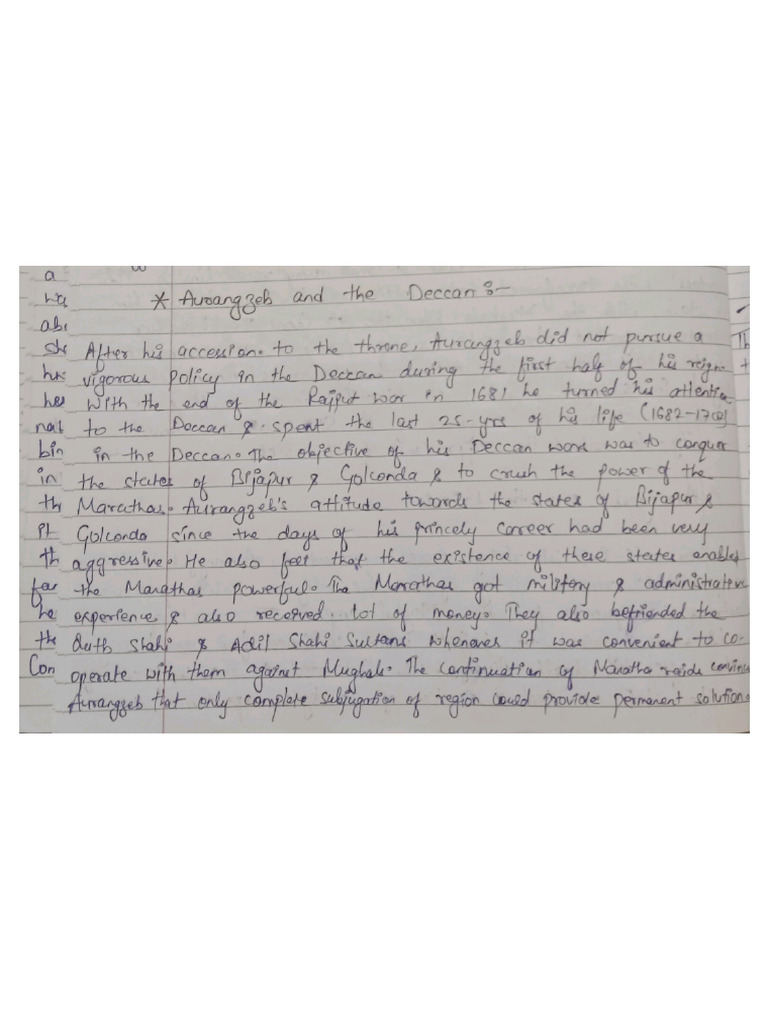 a
* Auroangzeb and the Deccan :-
abi
she After his accession. to the throne, Aurangzeb did not pursue a
his vigorous policy in the Deccan during the first half of his reign.
her With the end of the Rajput war in 1681 he turned his attention
to the Deccan & spent the last 25-yrs of his life (1682-1707)
bin in the Deccan. The objective of his Deccan work was to conquer
in the states of Bijapur & Golconda & to crush the power of the
th Marathas. Aurangzeb's attitude towards the states of Bijapur &
It Golconda since the days of his princely career had been very
th aggressive. He also feel that the existence of these states enabled
for the Marathas powerful. The Marathas got military & administrative
he experience & also received lot of money. They also befriended the
th Qutb Shahi & Adil Shahi Sultans whenever it was convenient to co-
Con operate with them against Mughals. The continuation of Maratha raids convince
Aurangzeb that only complete subjugation of region could provide permanent solutions
Th